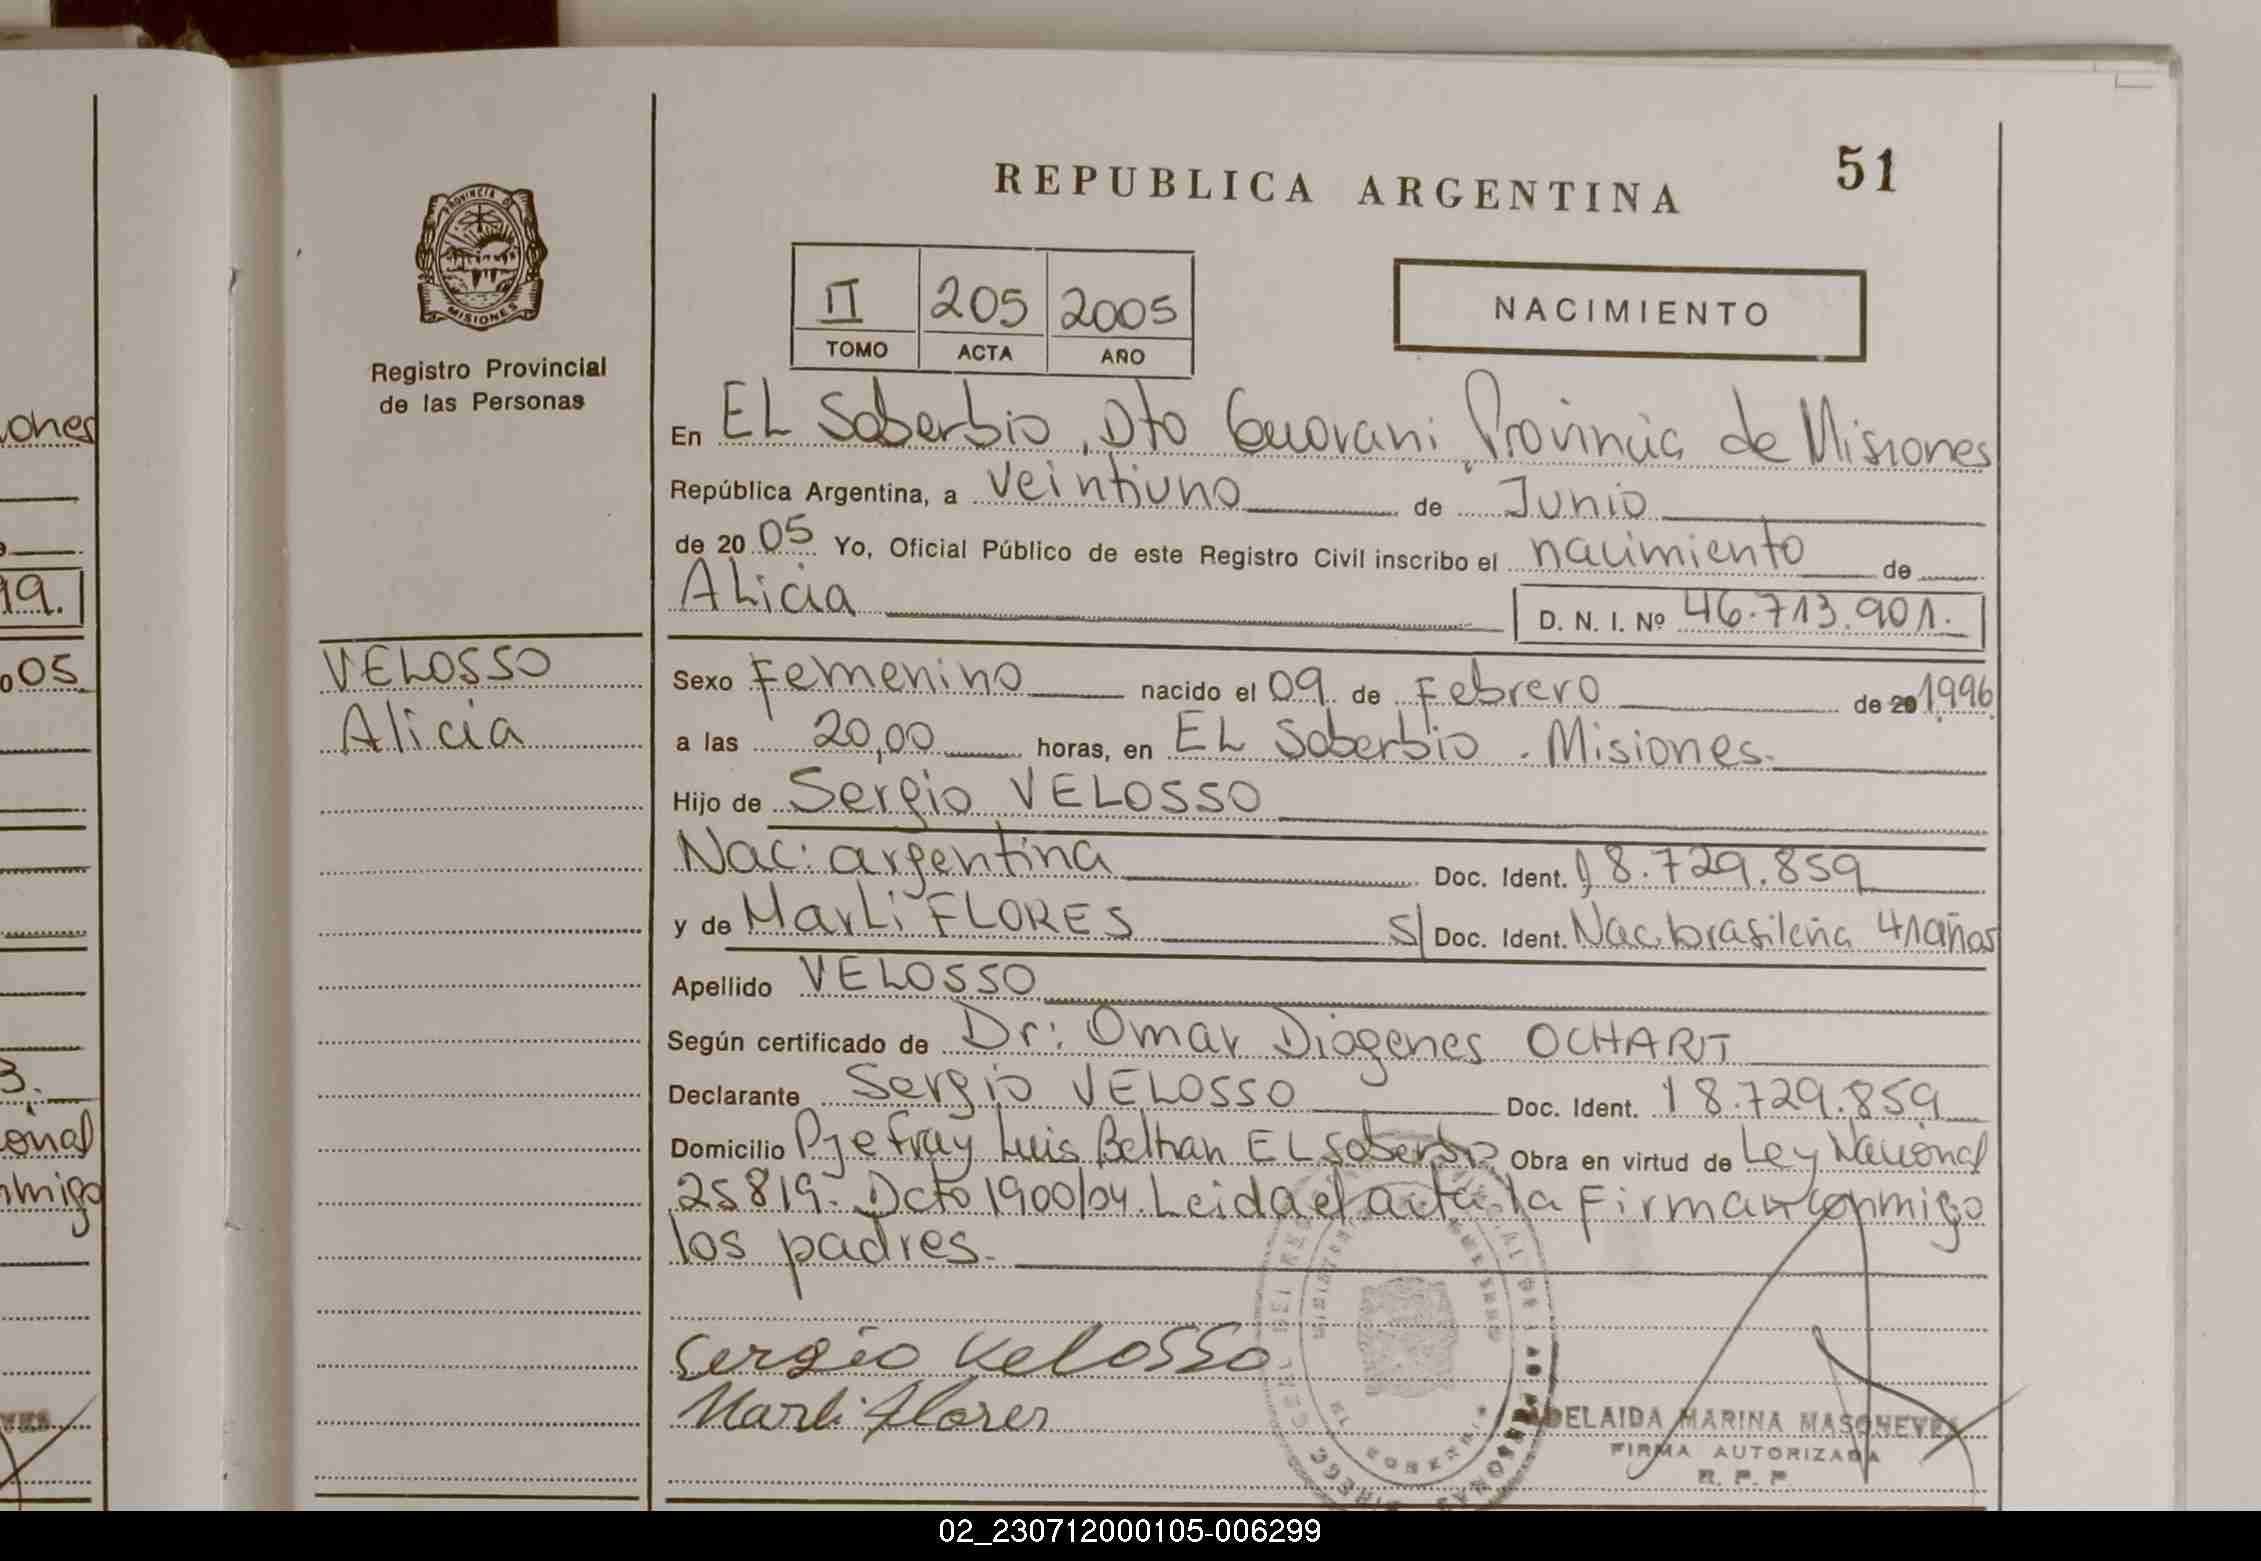 REPUBLICA ARGENTINA
51
PROVINCIA DE
MISIONES
Registro Provincial
de las Personas
II 205 2005
TOMO ACTA AÑO
NACIMIENTO
En EL Soberbio, Dto Guarani, Provincia de Misiones
República Argentina, a veintiuno de Junio
de 20 05 Yo, Oficial Público de este Registro Civil inscribo el nacimiento de
Alicia D. N. I. Nº 46.713.901.
VELOSSO
Alicia
Sexo Femenino nacido el 09 de Febrero de 20 1996
a las 20,00 horas, en EL Soberbio - Misiones.
Hijo de Sergio VELOSSO
Nac: argentina Doc. Ident. 18.729.859
y de Marli FLORES S/ Doc. Ident. Nac. brasileña 41 años
Apellido VELOSSO
Según certificado de Dr: Omar Diogenes OCHARIT
Declarante Sergio VELOSSO Doc. Ident. 18.729.859
Domicilio Pje Fray Luis Beltran EL Soberbio Obra en virtud de Ley Nacional
25819- Dcto 1900/04. Leida el acta la Firman conmigo
los padres.
Sergio Velosso
Marli Flores
ADELAIDA MARINA
FIRMA AUTORIZADA
R. P. P.
ones
99.
05
3.
onal
nmigo
02_230712000105-006299